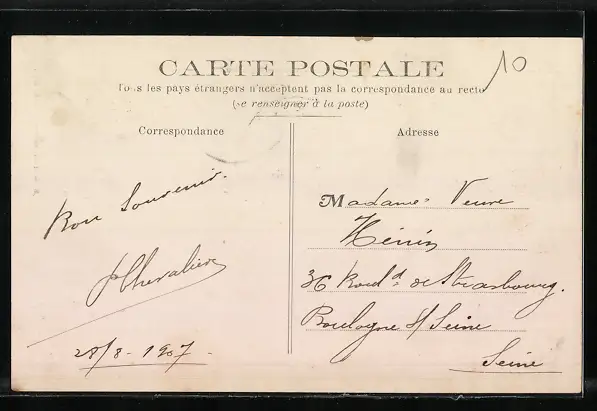 10
CARTE POSTALE
Tous les pays étrangers n'acceptent pas la correspondance au recto
(se renseigner à la poste)
Correspondance
Adresse
Bon Souvenir.
Chevalier
28/8 - 1907 -
Madame Veuve
Hénin
36 Boulᵈ de Strasbourg.
Boulogne s/ Seine
Seine